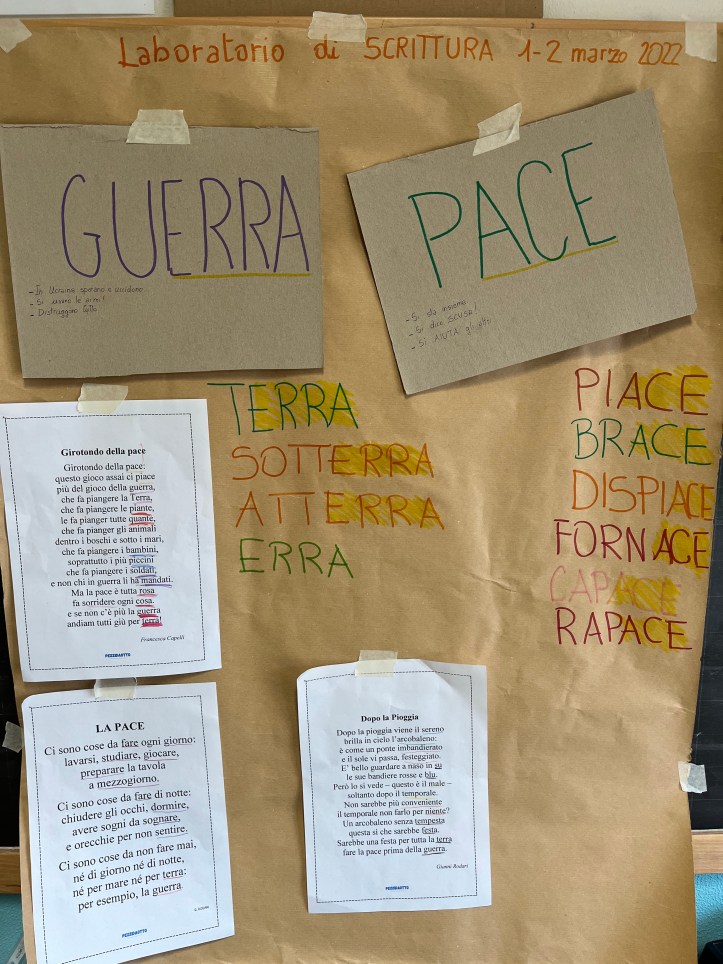 Laboratorio di SCRITTURA 1-2 marzo 2022
GUERRA
- In Ucraina sparano e uccidono...
- Si usano le armi!
- Distruggono tutto
PACE
- Si sta insieme
- Si dice SCUSA!
- Si AIUTA gli altri
TERRA
SOTTERRA
ATTERRA
ERRA
PIACE
BRACE
DISPIACE
FORNACE
CAPACE
RAPACE
Girotondo della pace
Girotondo della pace:
questo gioco assai ci piace
più del gioco della guerra,
che fa piangere la Terra,
che fa piangere le piante,
le fa pianger tutte quante,
che fa pianger gli animali
dentro i boschi e sotto i mari,
che fa piangere i bambini,
soprattutto i più piccini
che fa piangere i soldati,
e non chi in guerra li ha mandati.
Ma la pace è tutta rosa
fa sorridere ogni cosa.
e se non c'è più la guerra
andiam tutti giù per terra!
Francesca Capelli
PEZZDARTTO
LA PACE
Ci sono cose da fare ogni giorno:
lavarsi, studiare, giocare,
preparare la tavola
a mezzogiorno.
Ci sono cose da fare di notte:
chiudere gli occhi, dormire,
avere sogni da sognare,
e orecchie per non sentire.
Ci sono cose da non fare mai,
né di giorno né di notte,
né per mare né per terra:
per esempio, la guerra.
PEZZDARTTO
Dopo la Pioggia
Dopo la pioggia viene il sereno
brilla in cielo l'arcobaleno:
è come un ponte imbandierato
e il sole vi passa, festeggiato.
E' bello guardare a naso in su
le sue bandiere rosse e blu.
Però lo si vede – questo è il male –
soltanto dopo il temporale.
Non sarebbe più conveniente
il temporale non farlo per niente?
Un arcobaleno senza tempesta
questa sì che sarebbe festa.
Sarebbe una festa per tutta la terra
fare la pace prima della guerra.
Gianni Rodari
PEZZDARTTO